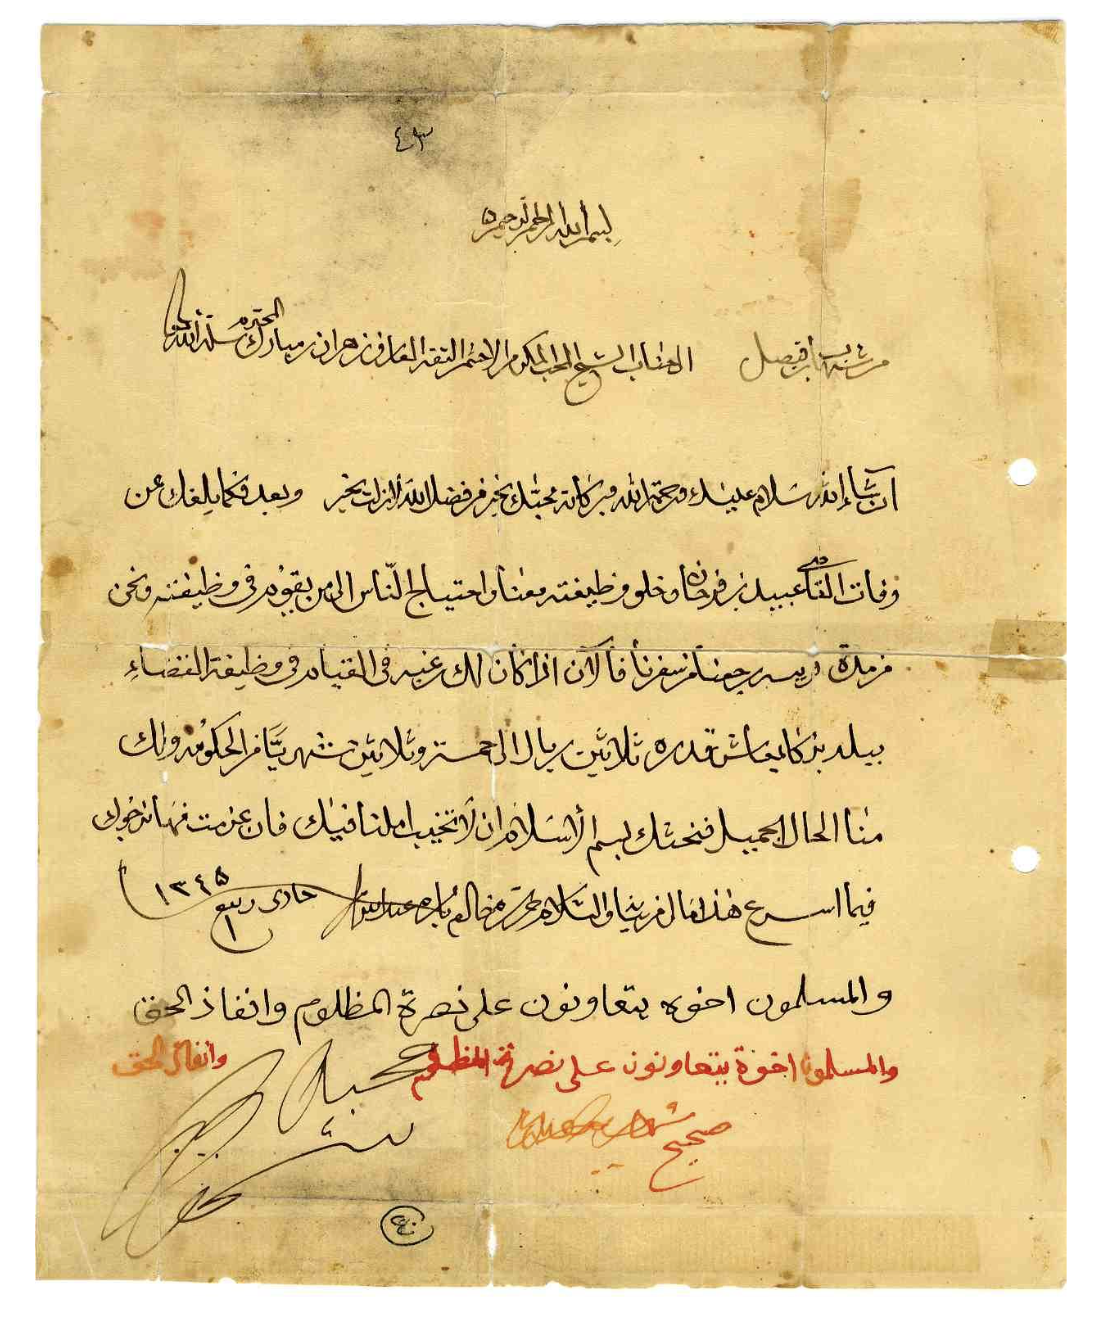 ٤٣
بسم الله الرحمن الرحيم
من شهاب بن فيصل الى جناب الشيخ المحب المكرم الاحشم الثقة العارف زهران بن مبارك المحترم سلمه الله تعالى
ان شاء الله سلام عليك ورحمة الله وبركاته محبك بخير من فضل الله لا زلت بخير وبعد فكما بلغك عن
وفات القاضي عبيد بن فرحان وخلو وظيفته معنا واحتياج الناس الى من يقوم في وظيفته ونحن
من مدة يسيره رجعنا من سفرنا فالآن اذا كان لك رغبه في القيام في وظيفة القضاء
ببلد بركا بمعاش قدره ثلاثين ريال الى خمسة وثلاثين شهريا من الحكومه ولك
منا الحال الجميل فنحثك باسم الاسلام ان لا تخيب املنا فيك فان عزمت فهيا نرجوك
فيما اسرع هذا مال غرشيا والسلام حرر من خالكم عبدالله حادي ربيع ١ ١٣٤٥
والمسلمون اخوه يتعاونون على نصرة المظلوم وانفاذ الحق
والمسلمون اخوة يتعاونون على نصرة المظلوم وانفاذ الحق
صحيح
محبك
٤٠